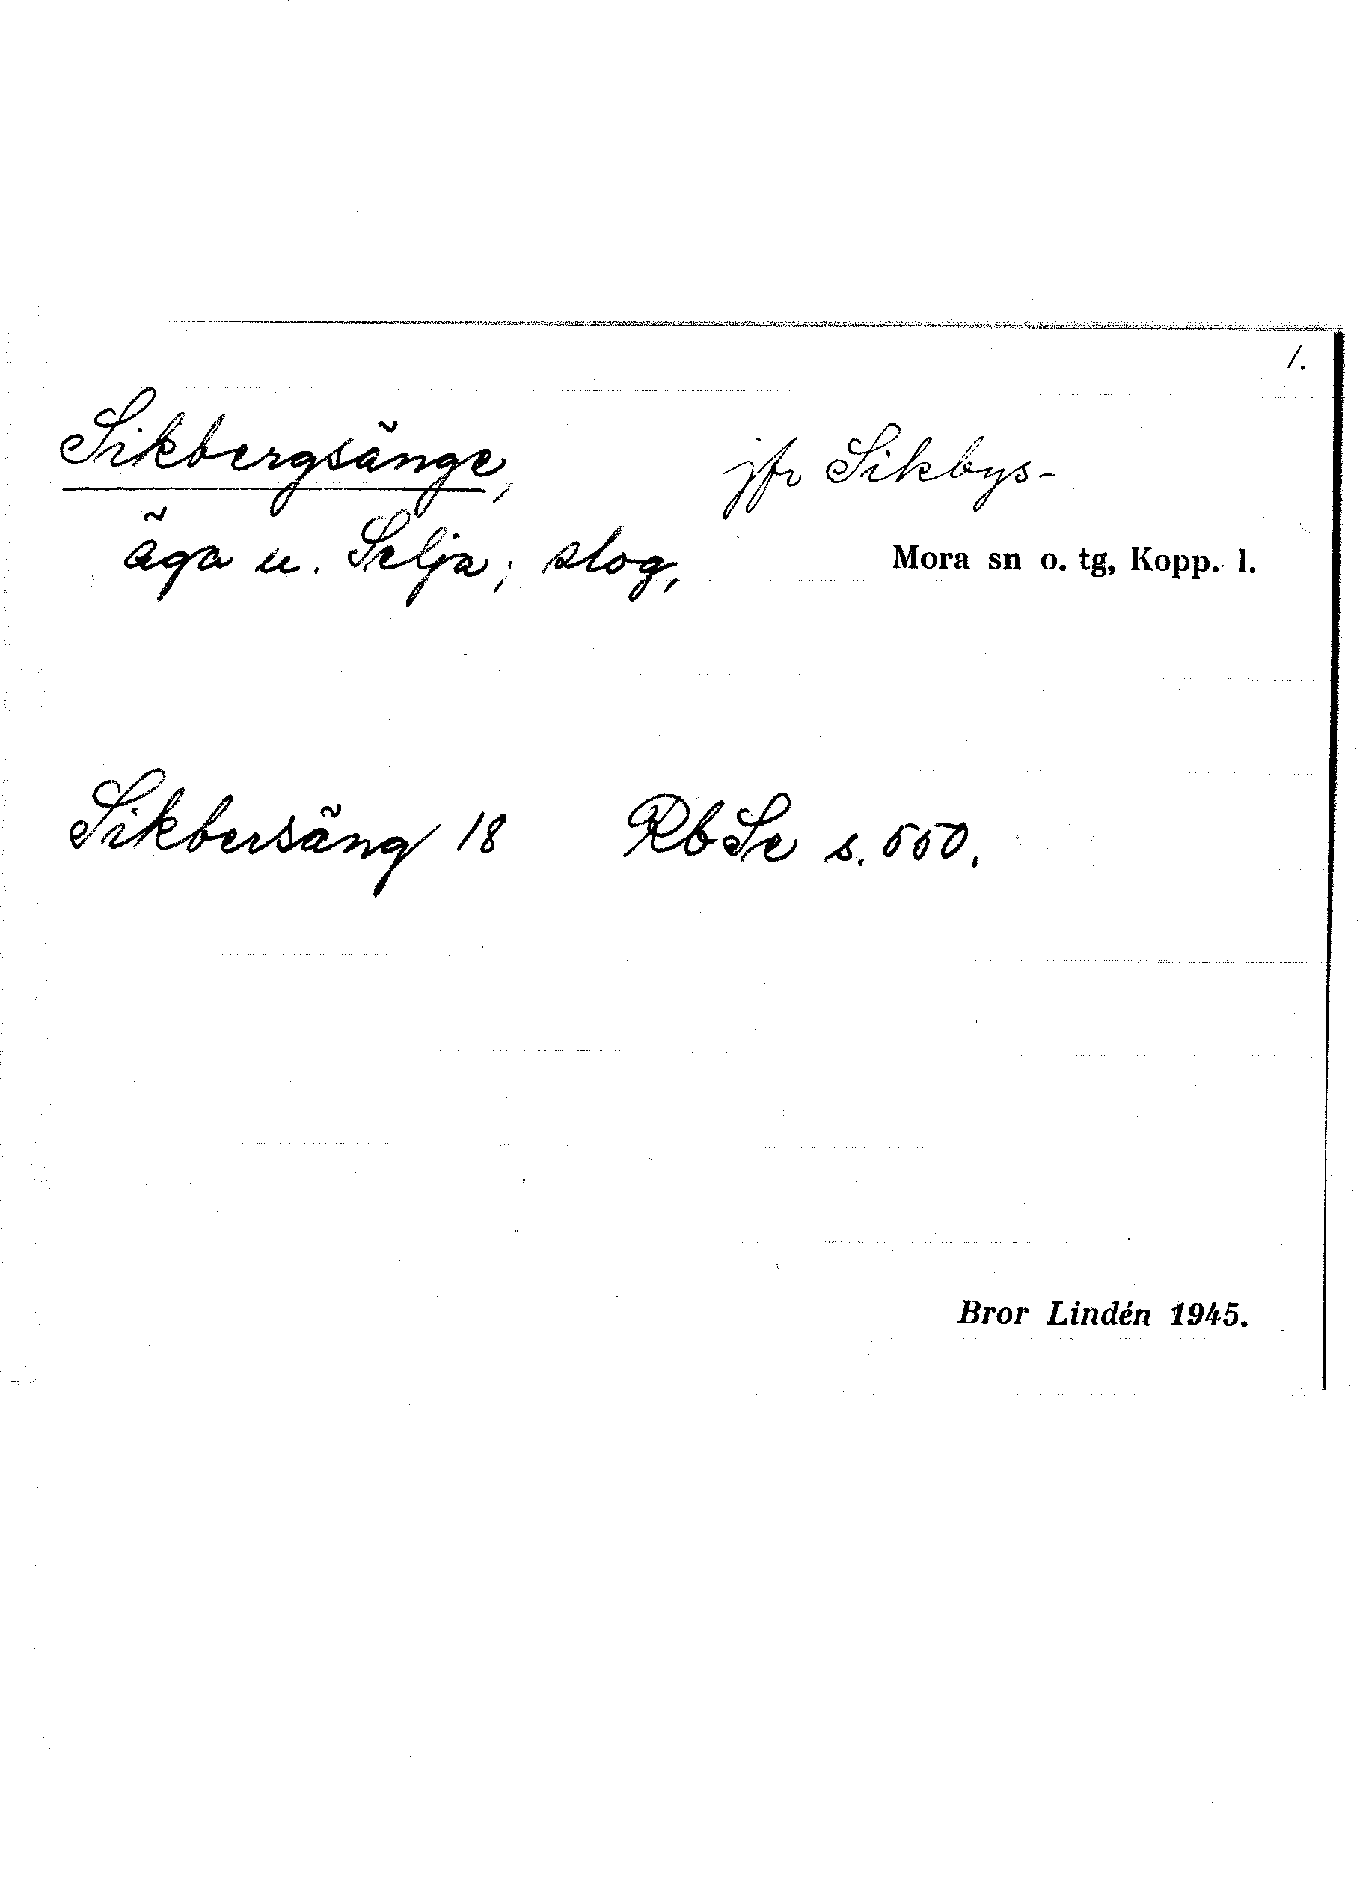 1.
Sikbergsänge, jfr Sikbys-
äga u. Selja; slog, Mora sn o. tg, Kopp. l.
Sikbersäng 18 RbSe s. 550.
Bror Lindén 1945.